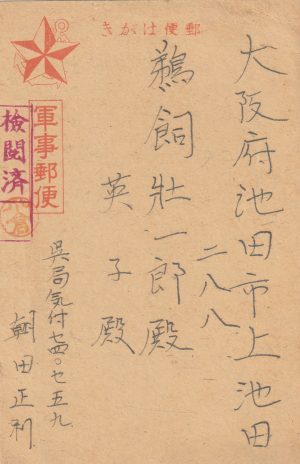 郵便はがき
軍事郵便
検閲済
大阪府池田市上池田
二八八
鵜飼壯一郎殿
英子殿
呉局気付
田正利